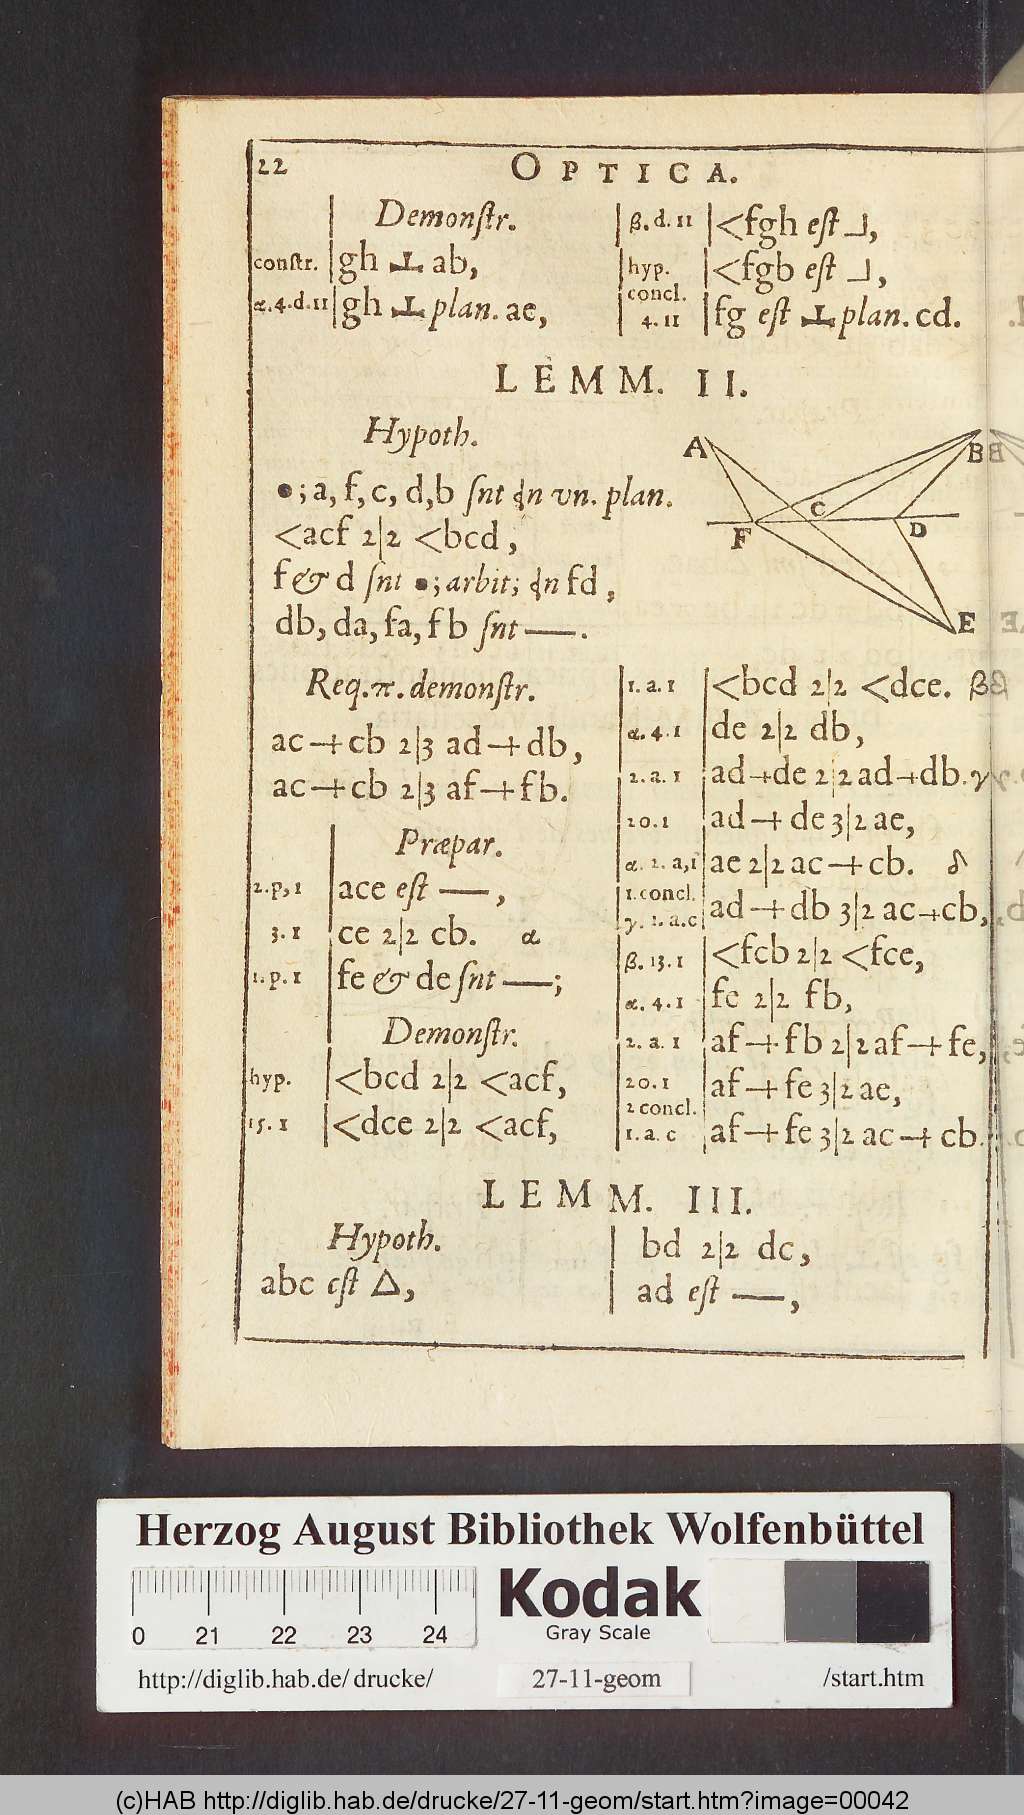 22 OPTICA.
Demonſtr.
conſtr. | gh ⊥ ab,
α.4.d.11 | gh ⊥ plan. ae,
β.d.11 | <fgh eſt ⅃,
hyp. | <fgb eſt ⅃,
concl.
4.11 | fg eſt ⊥ plan. cd.
LEMM. II.
Hypoth.
•; a, f, c, d, b ſnt in vn. plan.
<acf 2|2 <bcd,
f & d ſnt •; arbit; in fd,
db, da, fa, fb ſnt —.
A
B
C
F
D
E
Req. π. demonſtr.
ac + cb 2|3 ad + db,
ac + cb 2|3 af + fb.
Præpar.
2.p,1 | ace eſt —,
3.1 | ce 2|2 cb. α
1.p.1 | fe & de ſnt —;
Demonſtr.
hyp. | <bcd 2|2 <acf,
15.1 | <dce 2|2 <acf,
1.a.1 | <bcd 2|2 <dce. β
α.4.1 | de 2|2 db,
2.a.1 | ad + de 2|2 ad + db. γ
20.1 | ad + de 3|2 ae,
α.2.a,1 | ae 2|2 ac + cb. δ
1.concl.
γ.1.a.c | ad + db 3|2 ac + cb,
β.13.1 | <fcb 2|2 <fce,
α.4.1 | fe 2|2 fb,
2.a.1 | af + fb 2|2 af + fe,
20.1 | af + fe 3|2 ae,
2 concl.
1.a.c | af + fe 3|2 ac + cb.
LEMM. III.
Hypoth.
abc eſt Δ,
bd 2|2 dc,
ad eſt —,
Herzog August Bibliothek Wolfenbüttel
0 21 22 23 24
Kodak
Gray Scale
http://diglib.hab.de/ drucke/ 27-11-geom /start.htm
(c)HAB http://diglib.hab.de/drucke/27-11-geom/start.htm?image=00042